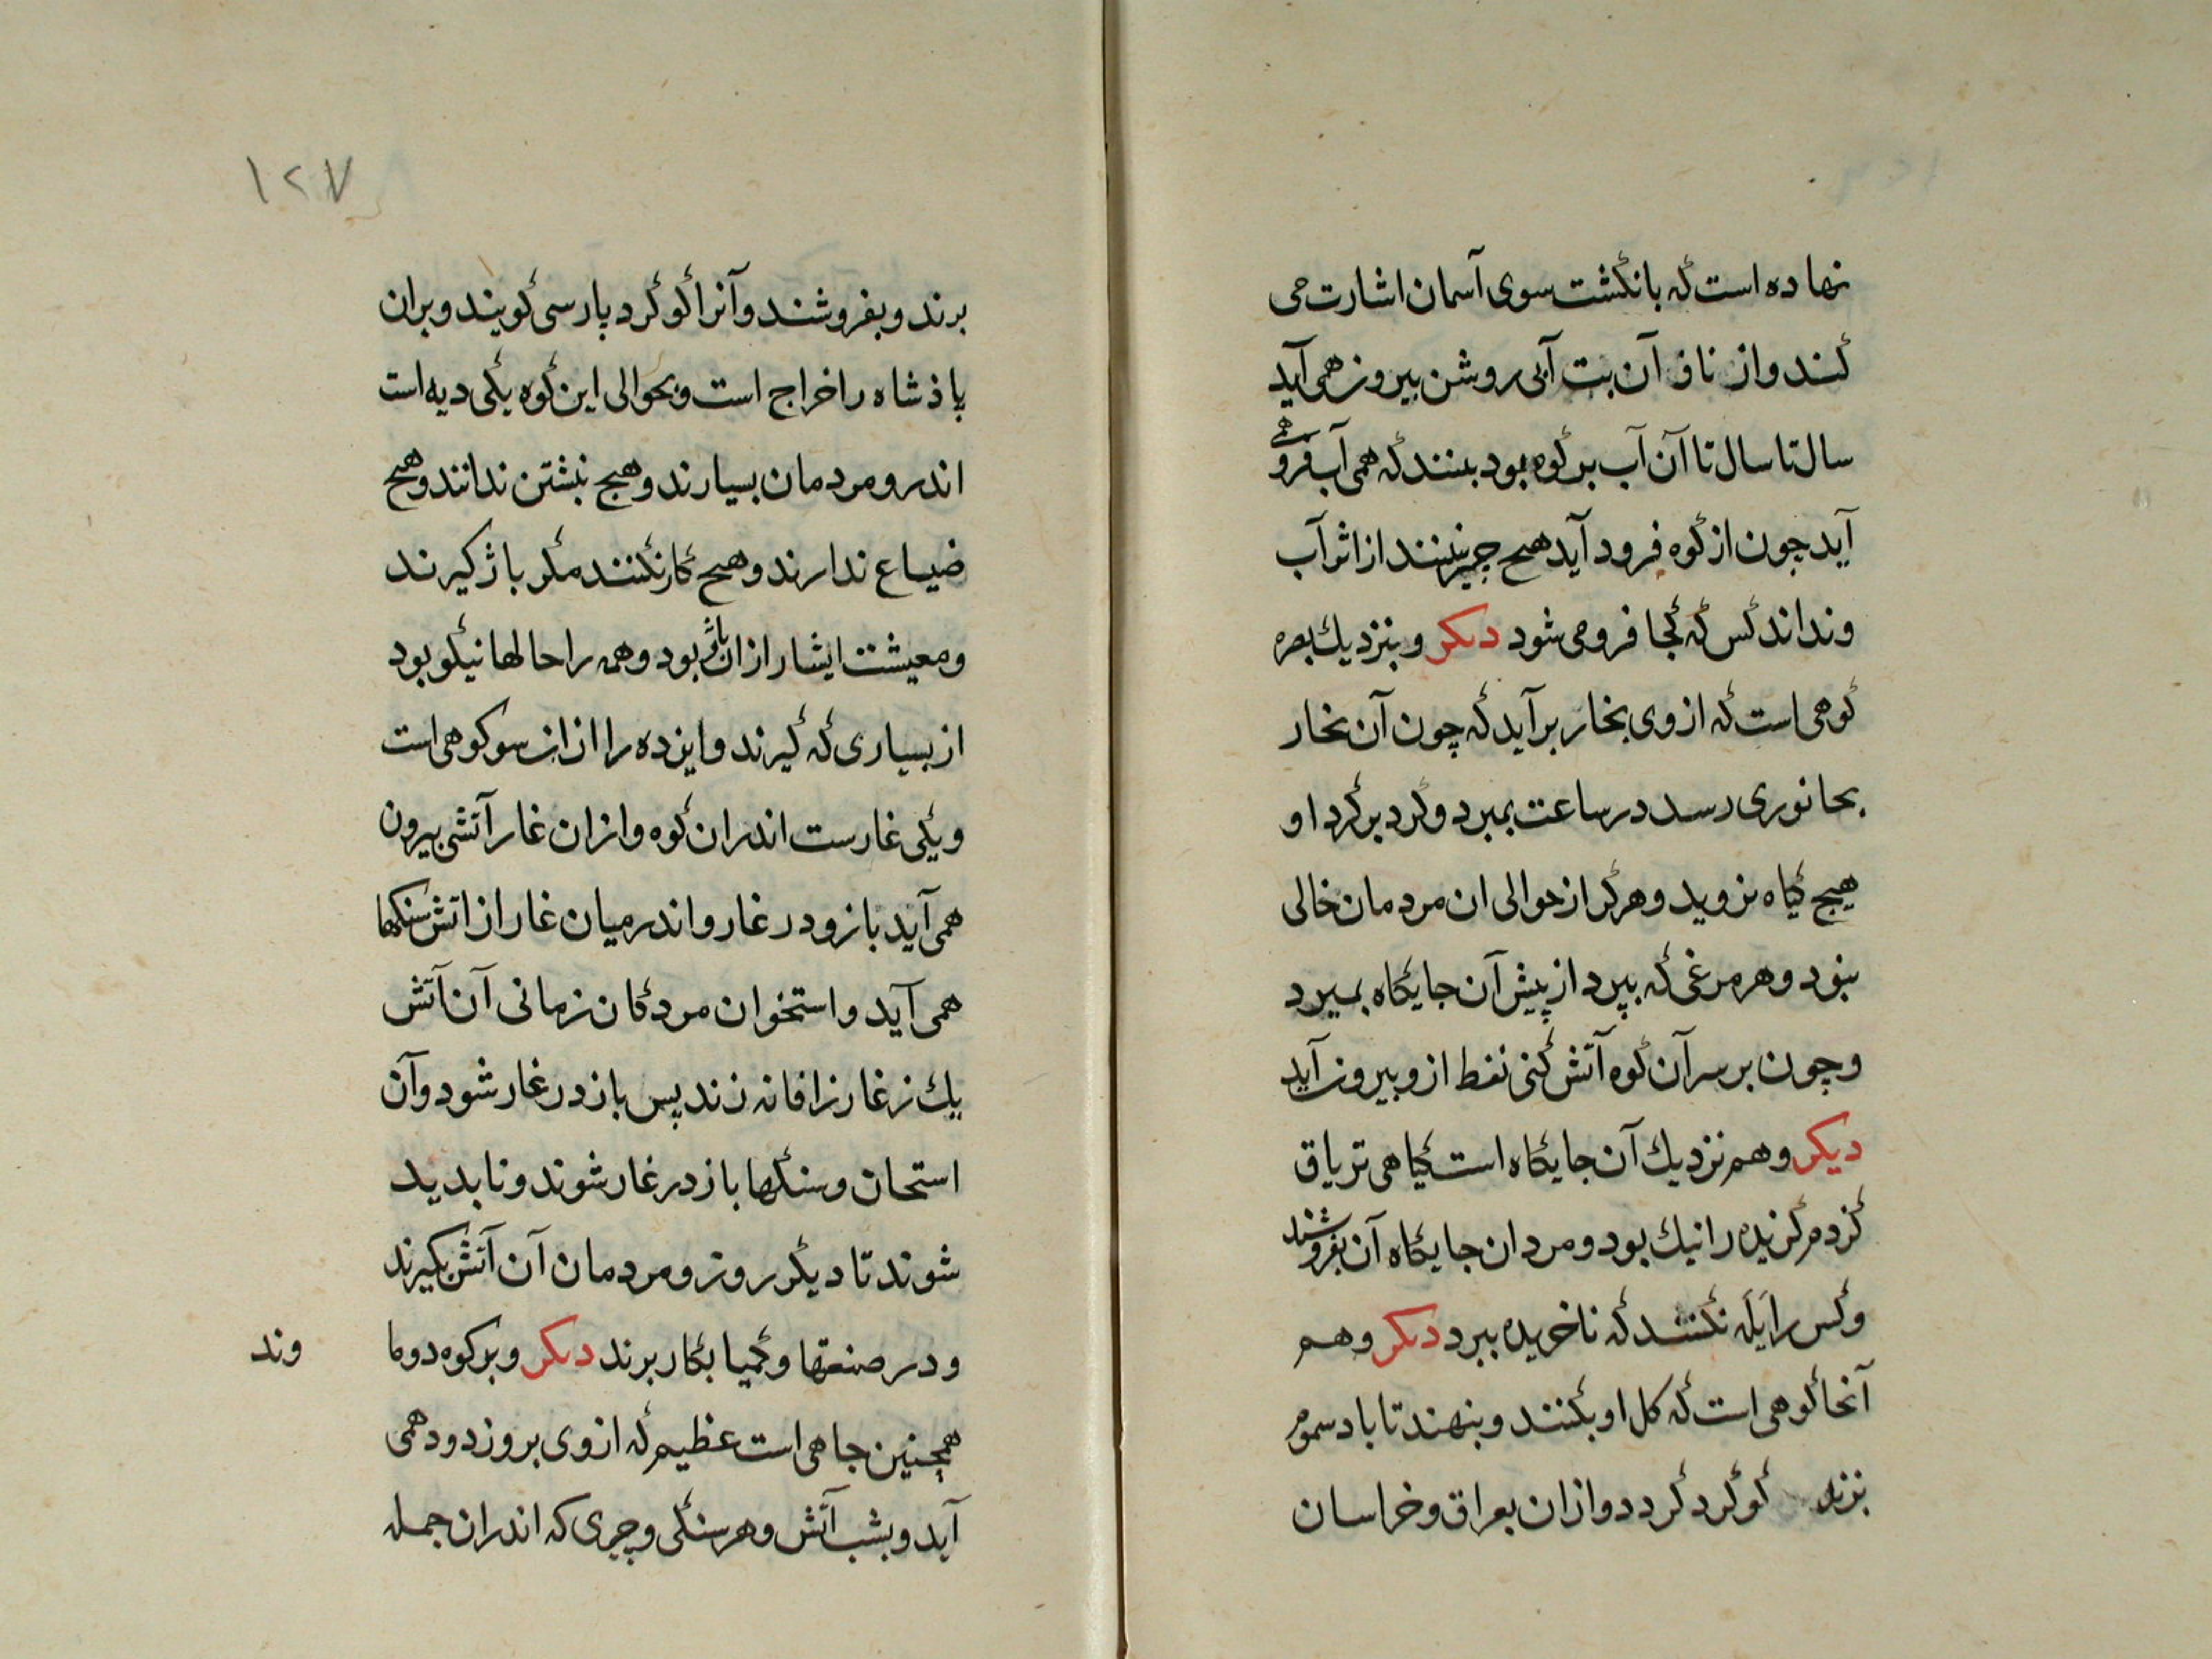 نهاده است که بانگشت سوی آسمان اشارت می
کند و از ناف آن بت آبی روشن بیرون همی آید
سال تا سال تا آن آب بر کوه بود بینند که همی آب فرو همی
آید چون از کوه فرود آید هیچ چیز نبینند از اثر آب
و نداند کس که کجا فرو می شود دیکر و بنزدیك بصره
کوهی است که از وی بخار برآید که چون آن بخار
بجانوری رسد در ساعت بمیرد و گرد بر گرد او
هیچ گیاه نروید و هرگز از حوالی ان مردمان خالی
نبود و هر مرغی که بپرد از پیش آن جایگاه بمیرد
و چون بر سر آن کوه آتش کنی نفط ازو بیرون آید
دیکر و هم نزدیك آن جایگاه است گیاهی تریاق
گزدم گزیده را نیك بود و مردان جایگاه آن بفروشند
و کس را یَلَه نکنند که ناخریده ببرد دیکر و هم
آنجا کوهی است که کل او بکنند و بنهند تا باد سموم
بزند گوگرد گردد و ازان بعراق و خراسان
١٢٧
برند و بفروشند و آنرا گوگرد پارسی گویند و بران
پاذشاه را خراج است و بحوالی این کوه یکی دیه است
اندرو مردمان بسیارند و هیچ نبشتن ندانند و هیچ
ضیاع ندارند و هیچ کار نکنند مگر باژ گیرند
و معیشت ایشان ازان باژ بود و همه را حالها نیکو بود
از بسیاری که گیرند و این ده را ازان سو کوهی است
و یکی غارست اندران کوه و ازان غار آتشی بیرون
همی آید باز و در غار و اندر میان غار از اتش سنکها
همی آید و استخوان مردگان زمانی آن آتش
یك ز غار زرافانه زند پس باز در غار شود و آن
استخان و سنگها باز در غار شوند و ناپدید
شوند تا دیگر روز و مردمان آن آتش بگیرند
و در صنعتها و کمیا بکار برند دیکر و بر کوه دوما
وند
همچنین جاهی است عظیم که از وی بروز دود همی
آید و بشب آتش و هر سنگی و چیزی که اندران جمله